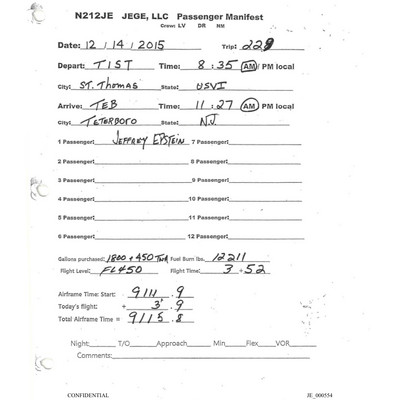 N212JE JEGE, LLC Passenger Manifest
Crew: LV DR NM
Date: 12 / 14 / 2015 Trip: 229
Depart: TIST Time: 8 : 35 AM/ PM local
City: ST. THOMAS State: USVI
Arrive: TEB Time: 11 : 27 AM PM local
City: TETERBORO State: N.J.
1 Passenger: JEFFREY EPSTEIN 7 Passenger:
2 Passenger: 8 Passenger:
3 Passenger: 9 Passenger:
4 Passenger: 10 Passenger:
5 Passenger: 11 Passenger:
6 Passenger: 12 Passenger:
Gallons purchased: 1800 + 450 Fuel Burn lbs. 12211
Flight Level: FL450 Flight Time: 3 + 52
Airframe Time: Start: 9111 . 9
Today's flight: + 3 . 9
Total Airframe Time = 9115 . 8
Night: T/O Approach Min Flex VOR
Comments:
CONFIDENTIAL JE_000554